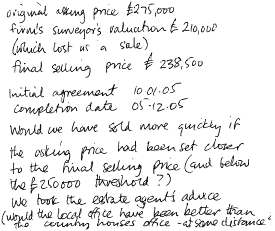 original asking price £275,000
firm's surveyor's valuation £210,000
(which lost us a sale)
final selling price £238,500
Initial agreement 10.01.05
completion date 05-12.05
Would we have sold more quickly if
the asking price had been set closer
to the final selling price (and below
the £250000 threshold?)
We took the estate agent's advice
(would the local office have been better than
the country houses office - at some distance?